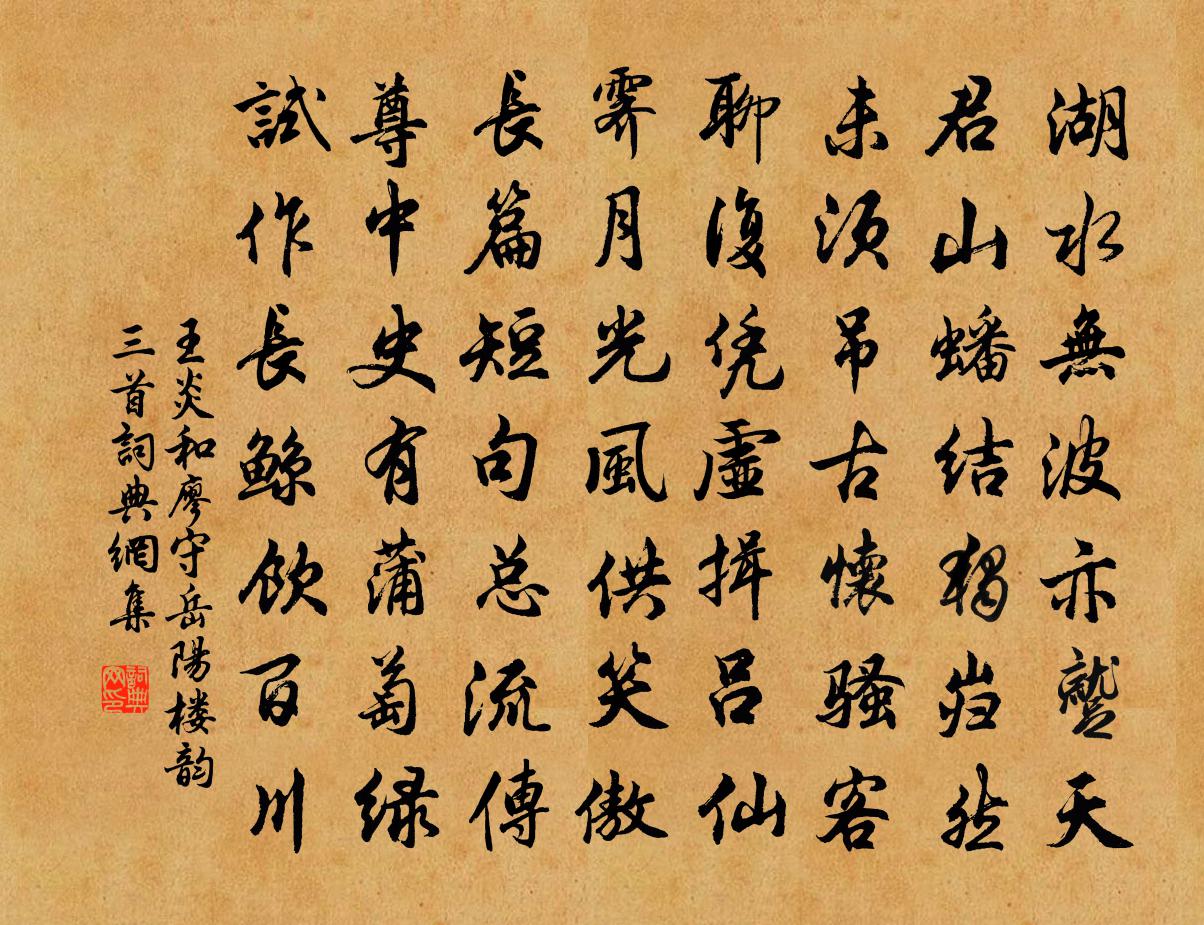 湖水無波亦天
君山蟠結獨岿然
未須吊古懷騷客
聊復凭虛揖吕仙
霽月光風供笑傲
長篇短句总流傳
尊中史有蒲萄緑
試作長鯨飲百川
王炎和廖守岳陽楼韵
三首詞典網集
詞典网印